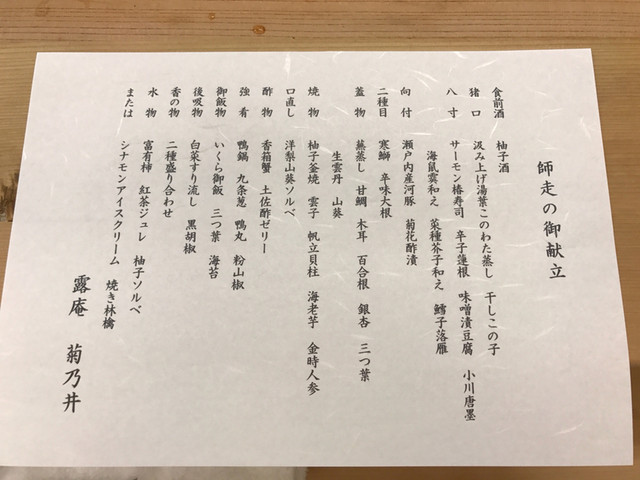 師走の御献立
食前酒 柚子酒
猪口 汲み上げ湯葉このわた蒸し 干しこの子
八寸 サーモン椿寿司 辛子蓮根 味噌漬豆腐 小川唐墨
海鼠霙和え 菜種芥子和え 鱈子落雁
向付 瀬戸内産河豚 菊花酢漬
二種目 寒鰤 辛味大根
蓋物 蕪蒸し 甘鯛 木耳 百合根 銀杏 三つ葉
生雲丹 山葵
焼物 柚子釜焼 雲子 帆立貝柱 海老芋 金時人参
口直し 洋梨山葵ソルベ
酢物 香箱蟹 土佐酢ゼリー
強肴 鴨鍋 九条葱 鴨丸 粉山椒
御飯物 いくら御飯 三つ葉 海苔
後吸物 白菜すり流し 黒胡椒
香の物 二種盛り合わせ
水物 富有柿 紅茶ジュレ 柚子ソルベ
または シナモンアイスクリーム 焼き林檎
露庵 菊乃井